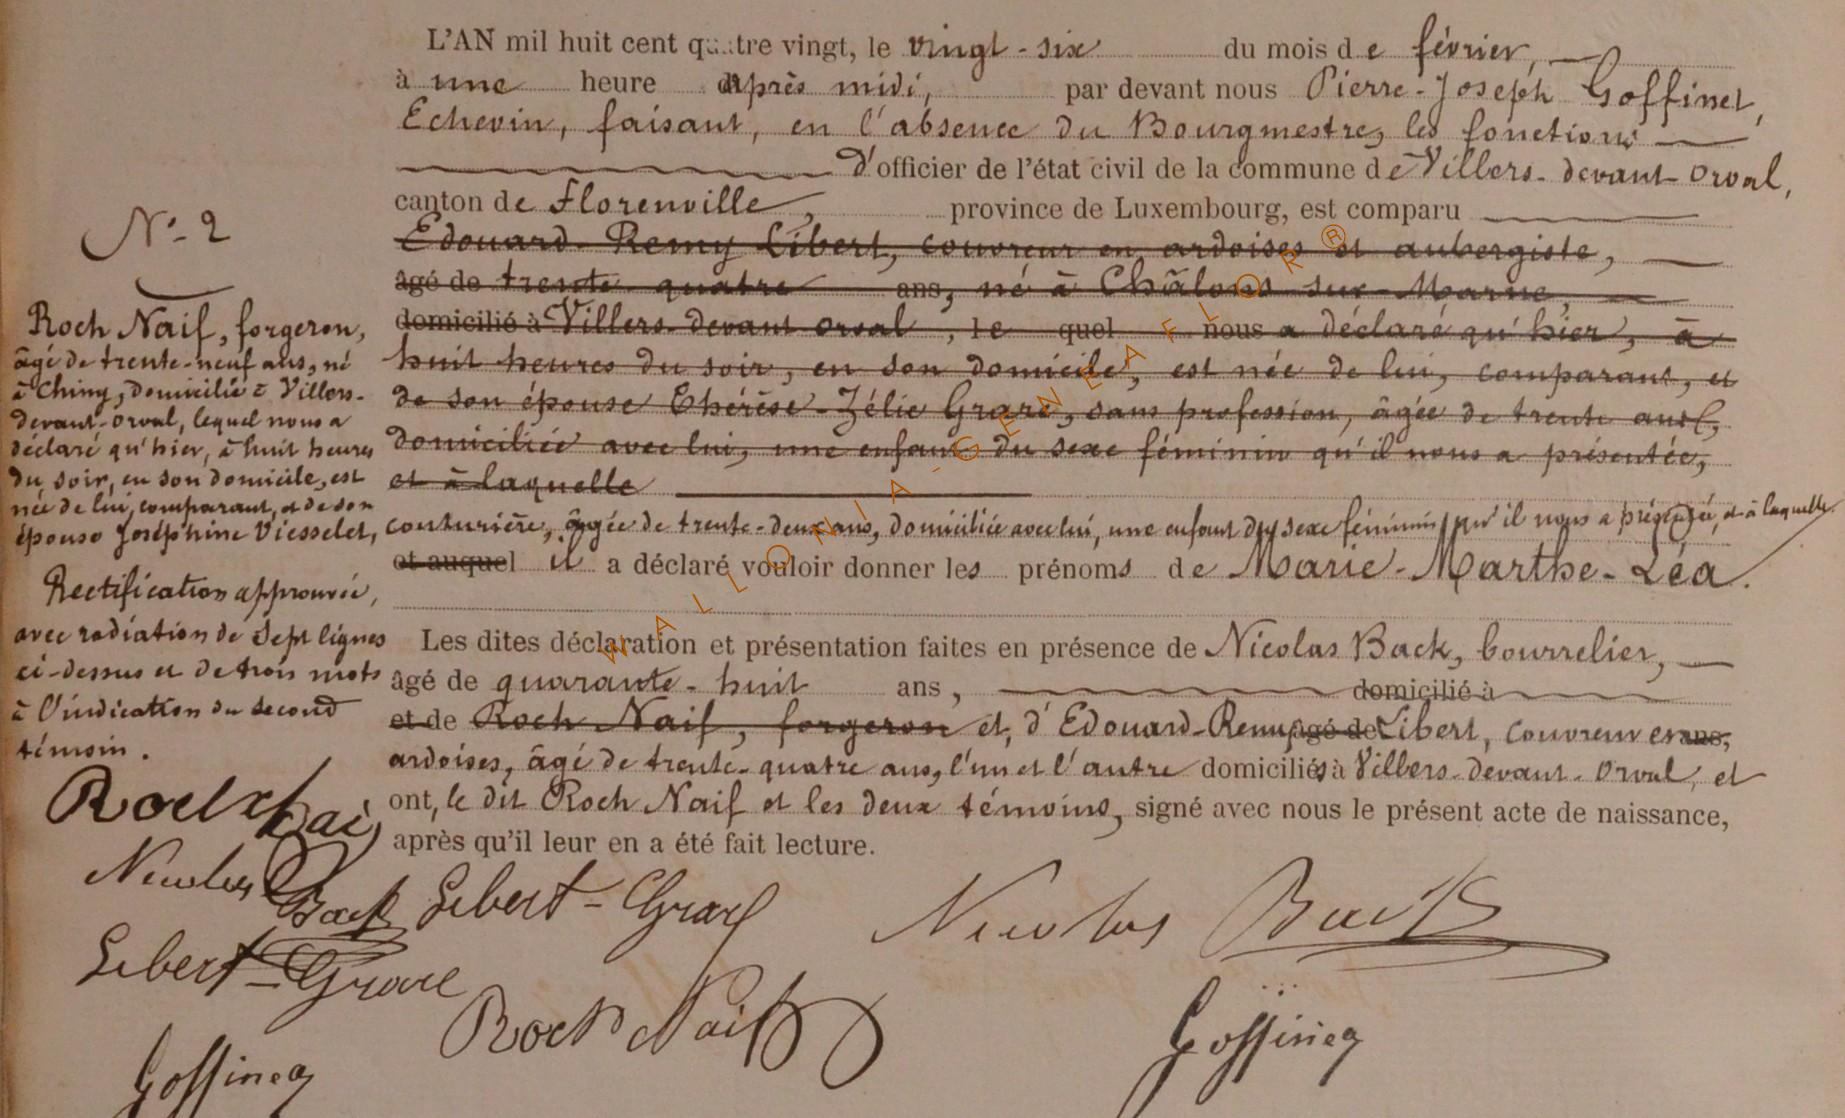 L'AN mil huit cent quatre vingt, le vingt-six du mois de février,
à une heure après midi, par devant nous Pierre-Joseph Goffinet,
Echevin, faisant, en l'absence du Bourgmestre, les fonctions
d'officier de l'état civil de la commune de Villers-devant-Orval,
canton de Florenville, province de Luxembourg, est comparu
Edouard Remy Libert, couvreur en ardoises et aubergiste,
âgé de trente quatre ans, né à Châlons sur Marne,
domicilié à Villers-devant orval, le quel nous a déclaré qu'hier, à
huit heures du soir, en son domicile, est née de lui, comparant, et
de son épouse Thérèse-Zélie Grare, sans profession, âgée de trente ans,
domiciliée avec lui, une enfant du sexe féminin qu'il nous a présentée,
et à laquelle
N° 2
Roch Naif, forgeron,
âgé de trente-neuf ans, né
à Chiny, domicilié à Villers-
devant-orval, lequel nous a
déclaré qu'hier, à huit heures
du soir, en son domicile, est
née de lui, comparant, et de son
épouse Joséphine Viesselet, couturière, âgée de trente-deux ans, domiciliée avec lui, une enfant du sexe féminin qu'il nous a présentée, et à laquelle
et auquel il a déclaré vouloir donner les prénoms de Marie-Marthe-Léa.
Rectification approuvée,
avec radiation de sept lignes
ci-dessus et de trois mots
à l'indication du second
témoin.
Les dites déclaration et présentation faites en présence de Nicolas Back, bourrelier,
âgé de quarante-huit ans, domicilié à
et de Roch Naif, forgeron et, d'Edouard-Remy âgé de Libert, couvreur en ans,
ardoises, âgé de trente-quatre ans, l'un et l'autre domiciliés à Villers-devant-Orval, et
ont, le dit Roch Naif et les deux témoins, signé avec nous le présent acte de naissance,
après qu'il leur en a été fait lecture.
Roch Naif
Nicolas Back
Libert-Grare
Goffinet
Libert-Grare
Nicolas Back
Roch Naif
Goffinet
WALLONIA-GENEAFLOR®